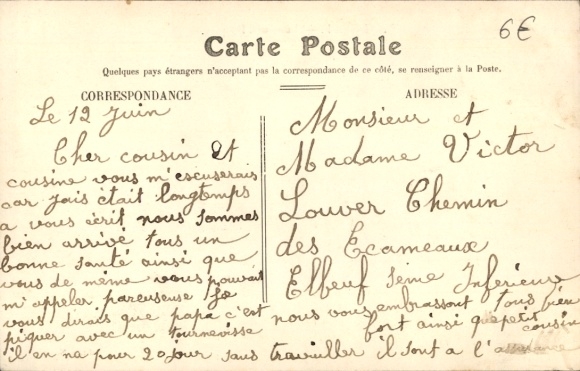 6€
Carte Postale
Quelques pays étrangers n'acceptant pas la correspondance de ce côté, se renseigner à la Poste.
CORRESPONDANCE
Le 12 Juin
Cher cousin et
cousine vous m'escuserais
car jais était longtemps
a vous écrit nous sommes
bien arrivé tous un
bonne santé ainsi que
vous de même vous pouvait
m'appeler pareuseuse Je
vous dirais que papa c'est
piquer avec un tournevisse
il en na pour 20 jour sans travailler il sont a l'assurance
nous vous embrassont tous bien
fort ainsi que petit
cousin
ADRESSE
Monsieur et
Madame Victor
Louver Chemin
des Ecameaux
Elbeuf Seine Inferieure